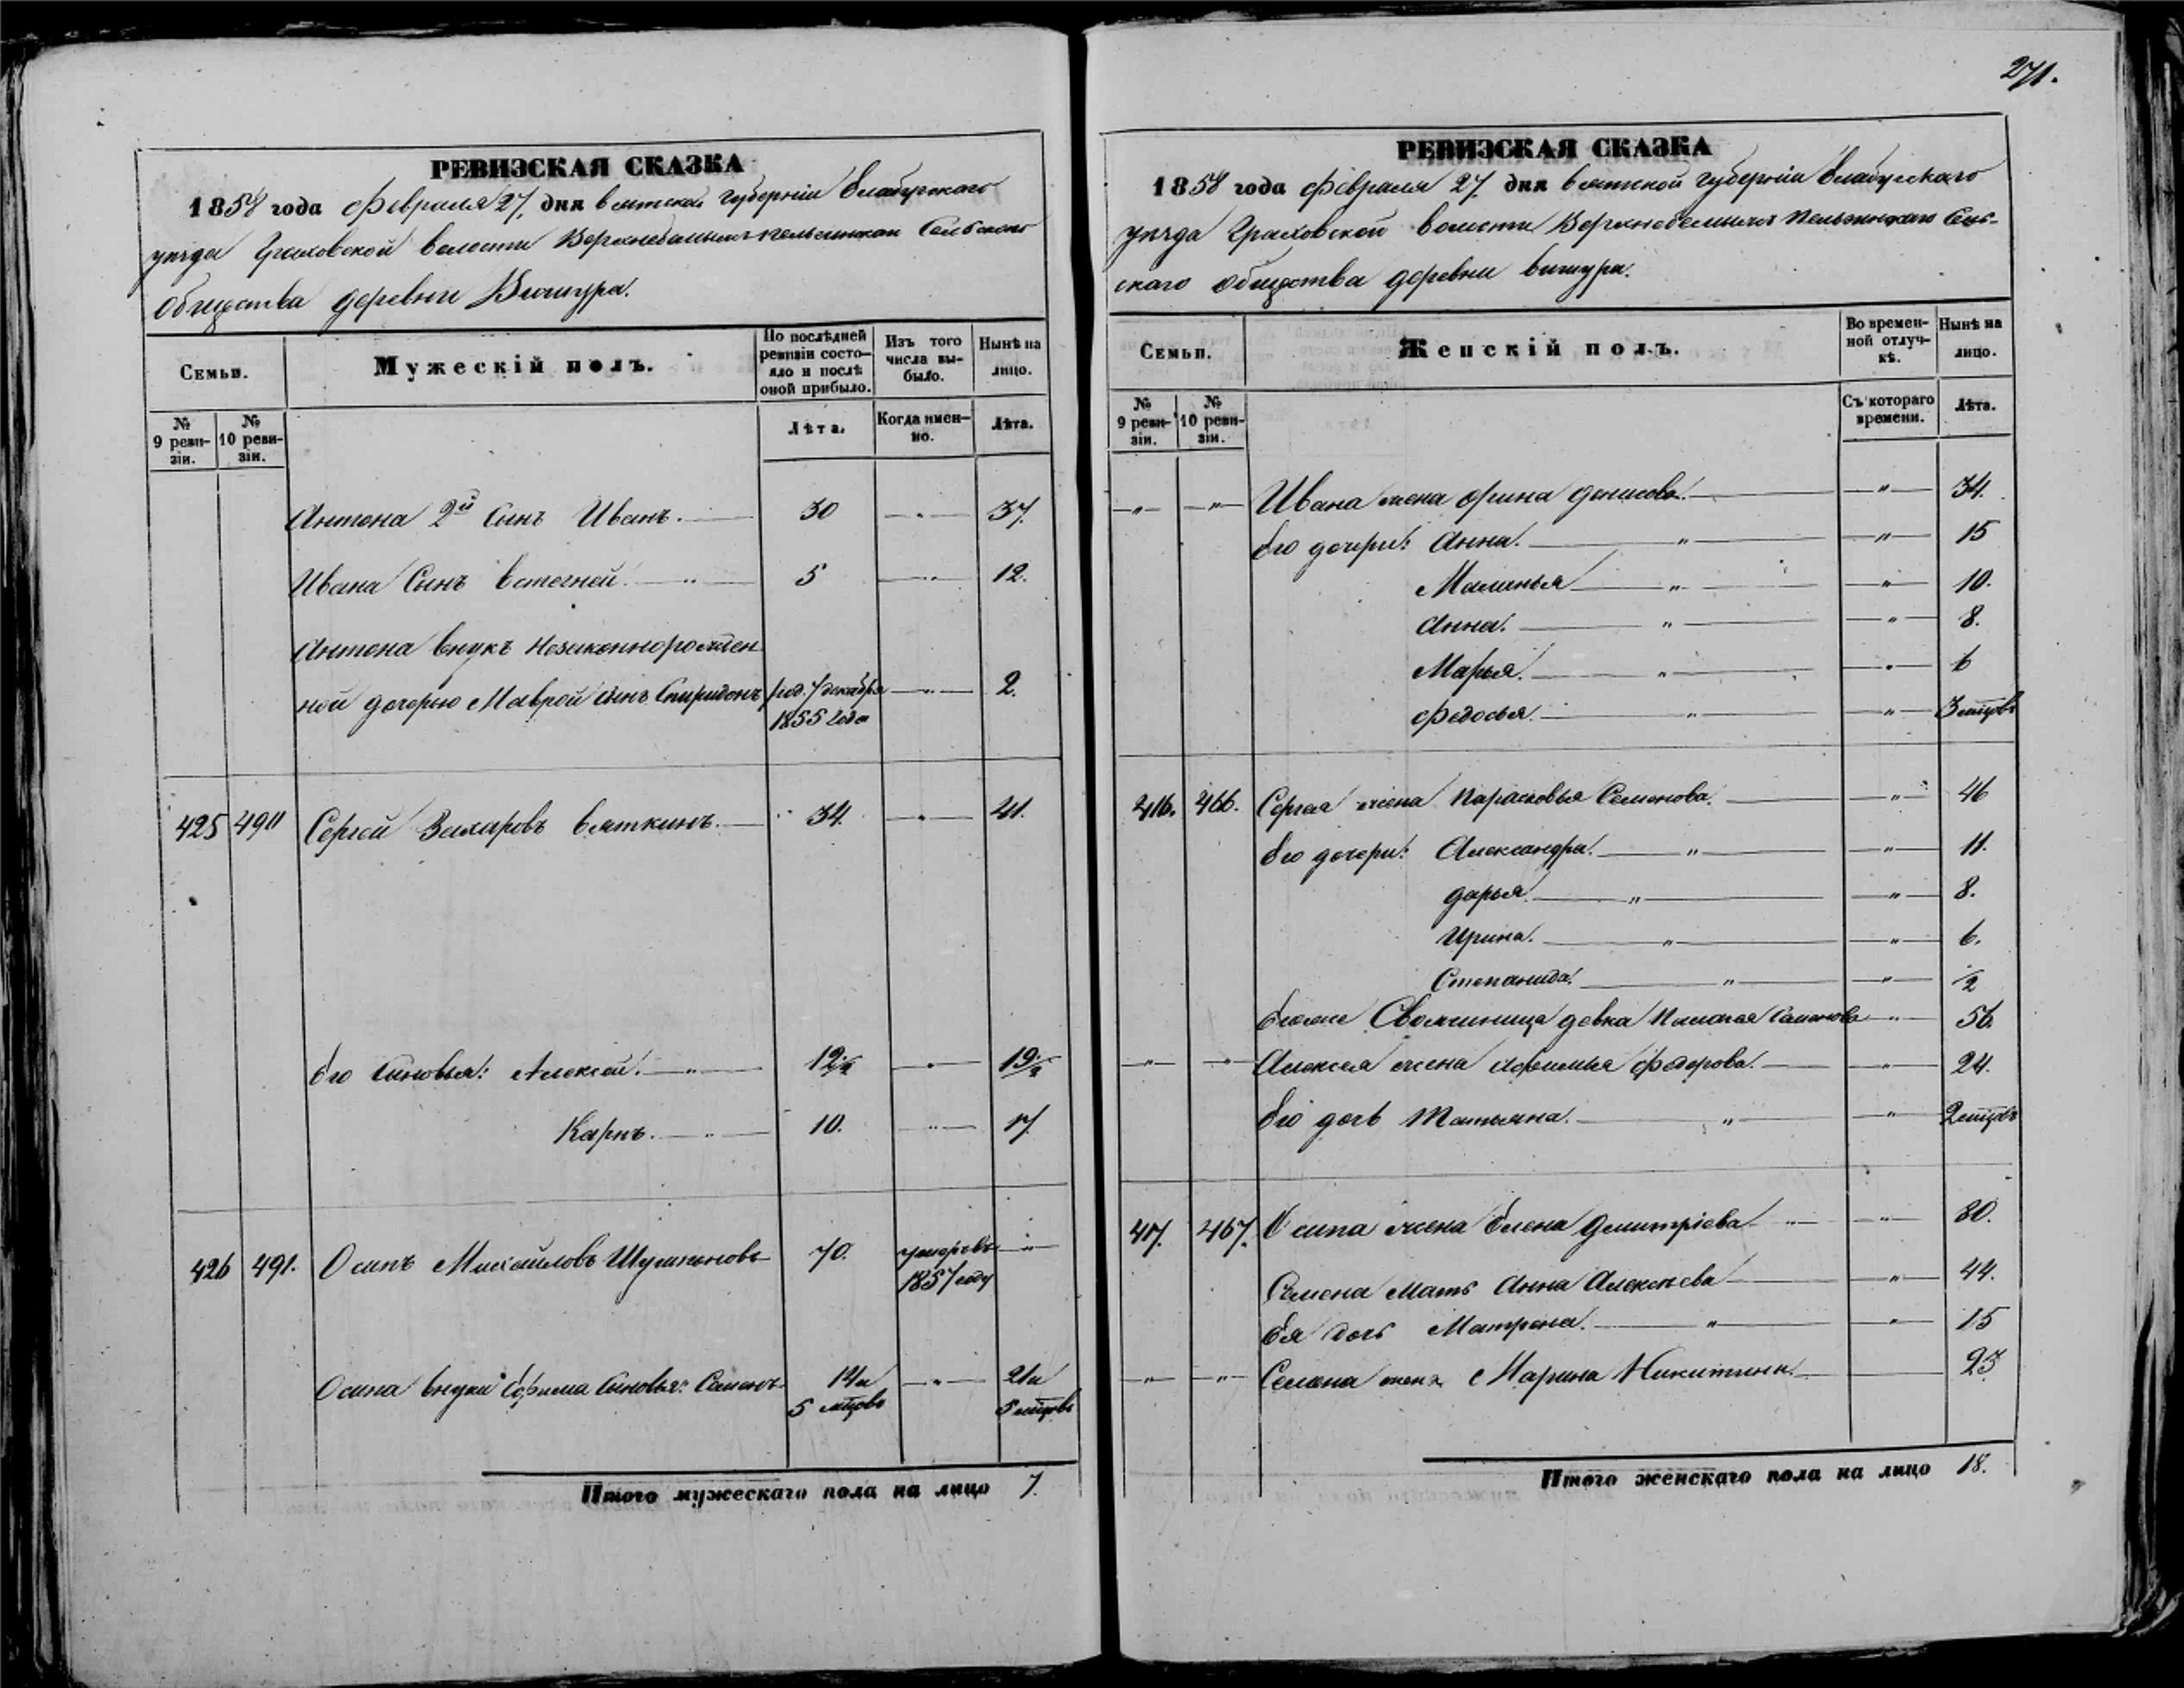 271.
РЕВИЗСКАЯ СКАЗКА
1858 года Февраля 27, дня Вятской Губерніи Елабугскаго
уѣзда Граховской волости Сельскаго
Общества деревни Вишура.
Семьи.
Мужескій полъ.
По послѣдней ревизіи состояло и послѣ оной прибыло.
Изъ того числа выбыло.
Нынѣ на лицо.
№ 9 ревизіи.
№ 10 ревизіи.
Лѣта.
Когда именно.
Лѣта.
Антона 2й Сынъ Иванъ. 30 " 37.
Ивана Сынъ Евстегней. " 5 " 12.
Антона внукъ незаконнорожден
ной дочерью Маврой сынъ Спиридонъ род. 7 декабря " 2.
1855 года
425 490 Сергей Захаровъ Вяткинъ. 34. " 41.
Его Сыновья: Алексей. " 12½ " 19½
Карпъ. " 10. " 17.
426 491. Осипъ Михайловъ 70. умеръ въ "
1857 году
Осипа внуки Ефима Сыновья: Семенъ 14 и " 21 и
5 мцовъ 5 мцовъ
Итого мужескаго пола на лицо 7.
РЕВИЗСКАЯ СКАЗКА
1858 года Февраля 27. дня Вятской Губерніи Елабугскаго
уѣзда Граховской волости Сель-
скаго Общества деревни Вишура.
Семьи.
Женскій полъ.
Во временной отлучкѣ.
Нынѣ на лицо.
№ 9 ревизіи.
№ 10 ревизіи.
Съ котораго времени.
Лѣта.
" " Ивана жена Орина Денисова. " 34.
Его дочери: Анна. " " 15
Маланья " " 10.
Анна. " " 8.
Марья. " " 6
Федосья. " " 3 мцовъ
416. 466. Сергея жена Парасковья Семенова. " 46
Его дочери: Александра. " " 11.
Дарья. " " 8.
Ирина. " " 6.
Степанида. " " ½
Егоже Свояченица девка Пелагея Семенова " 56.
" " Алексея жена Афимья Федорова. " 24.
Его дочь Татьяна. " " 2 мцовъ
417. 467. Осипа жена Елена Дмитріева " " 80.
Семена Мать Анна Алексеева " 44.
Ея дочь Матрена. " " 15
" " Семена жена Марина Никитина. 23
Итого женскаго пола на лицо 18.